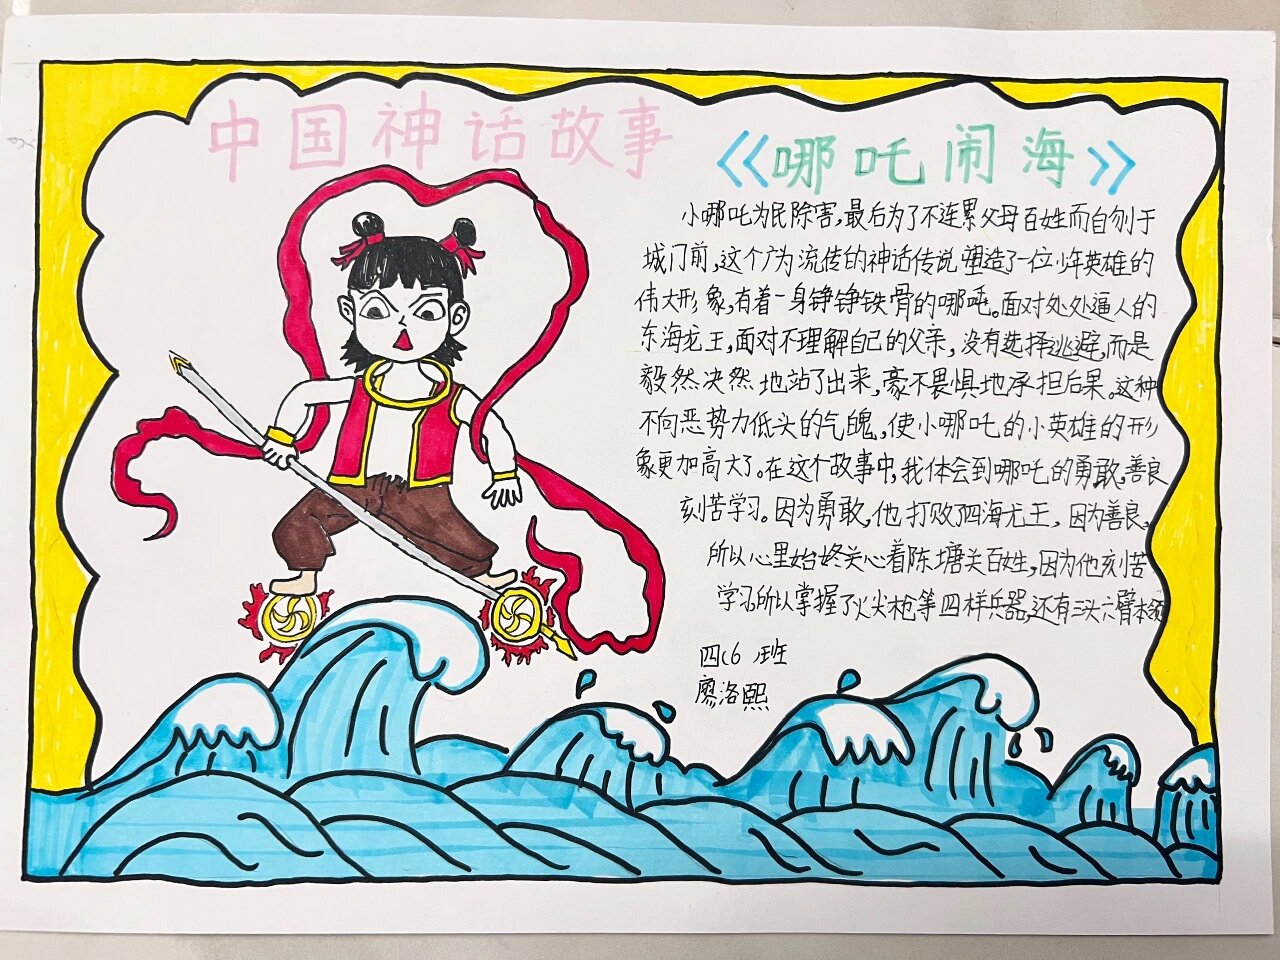 中国神话故事
《哪吒闹海》
小哪吒为民除害,最后为了不连累父母百姓而自刎于
城门前,这个广为流传的神话传说塑造了一位少年英雄的
伟大形象,有着一身铮铮铁骨的哪吒。面对处处逼人的
东海龙王,面对不理解自己的父亲,没有选择逃避,而是
毅然决然地站了出来,豪不畏惧地承担后果。这种
不向恶势力低头的气魄,使小哪吒的小英雄的形
象更加高大了。在这个故事中,我体会到哪吒的勇敢,善良
刻苦学习。因为勇敢,他打败了四海龙王,因为善良,
所以心里始终关心着陈塘关百姓,因为他刻苦
学习所以掌握了火尖枪等四样兵器,还有三头六臂本领
四(6)班
廖洛熙